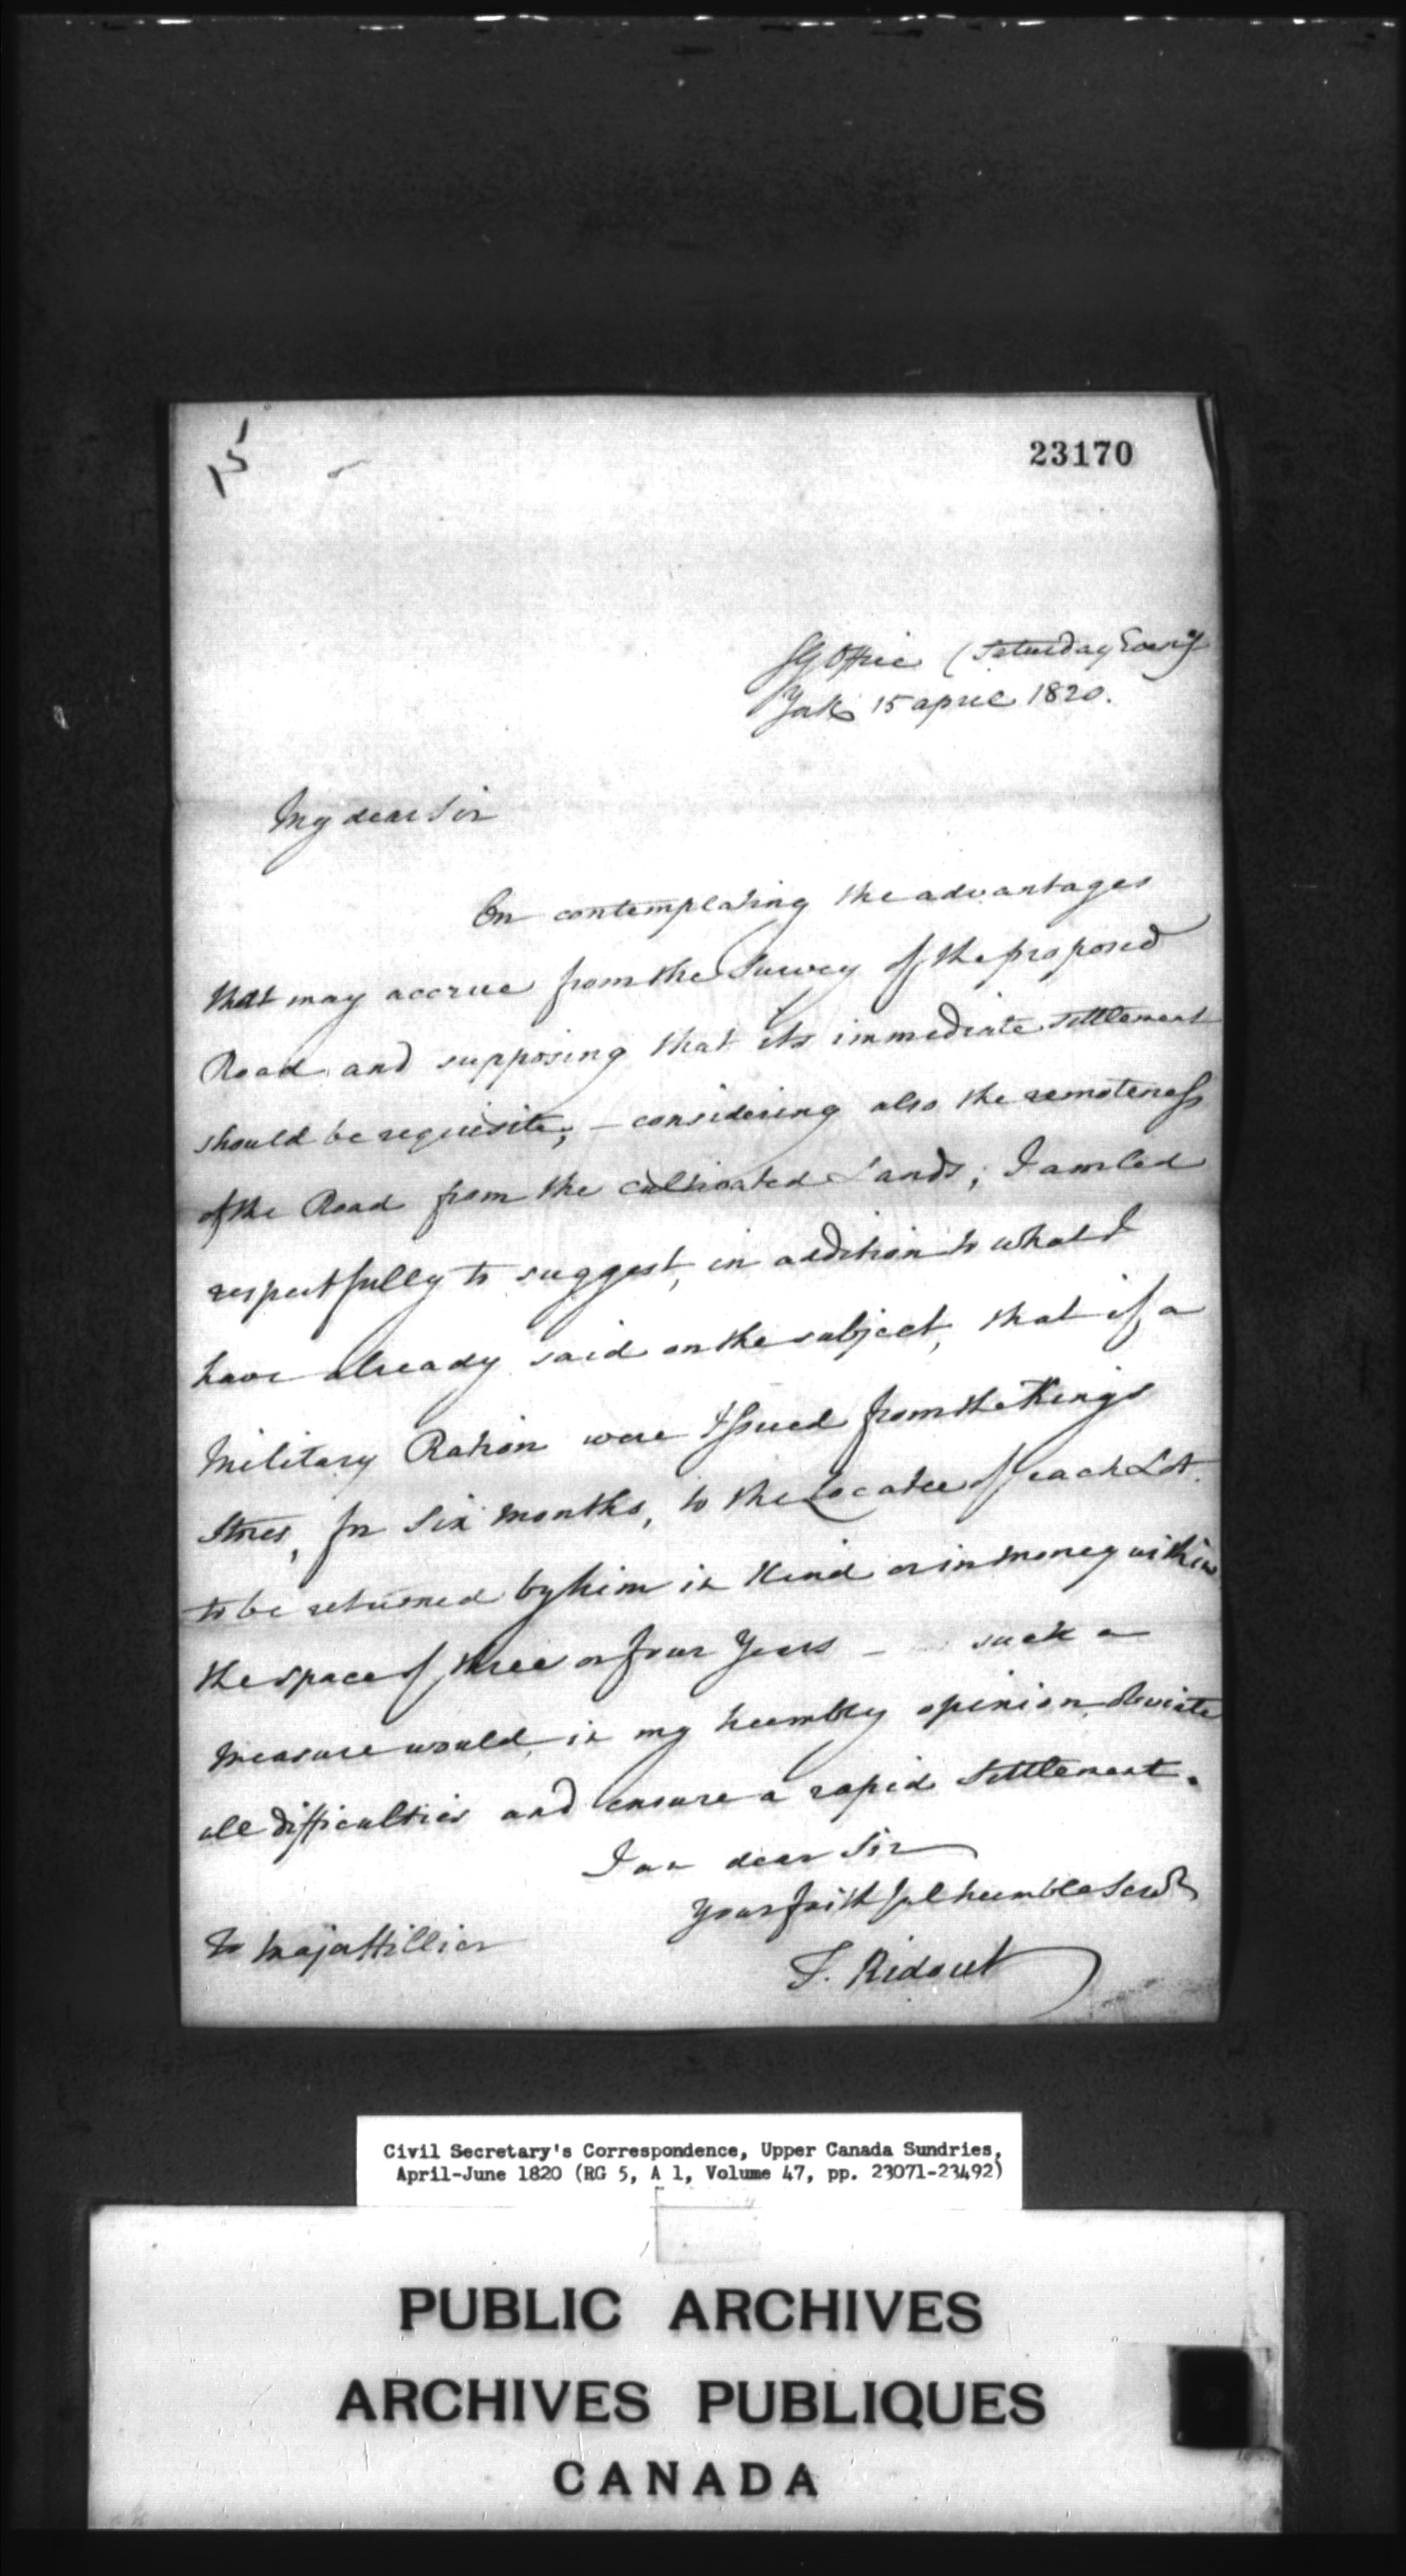 15
23170
SG Office (Saturday Eveng
York 15 april 1820.
My dear Sir
On contemplating the advantages
that may accrue from the Survey of the proposed
Road and supposing that its immediate settlement
should be requisite, – considering also the remoteness
of the Road from the cultivated Lands, I am led
respectfully to suggest, in addition to what I
have already said on the subject, that if a
Military Ration were Issued from the Kings
Stores, for Six Months, to the Locatee of each Lot
to be returned by him in Kind or in money within
the space of three or four Years – such a
Measure would, in my humble opinion, obviate
all difficulties and ensure a rapid Settlement.
I am dear Sir
Your faithful humble Servt
To Major Hillier
T. Ridout
Civil Secretary's Correspondence, Upper Canada Sundries,
April-June 1820 (RG 5, A 1, Volume 47, pp. 23071-23492)
PUBLIC ARCHIVES
ARCHIVES PUBLIQUES
CANADA